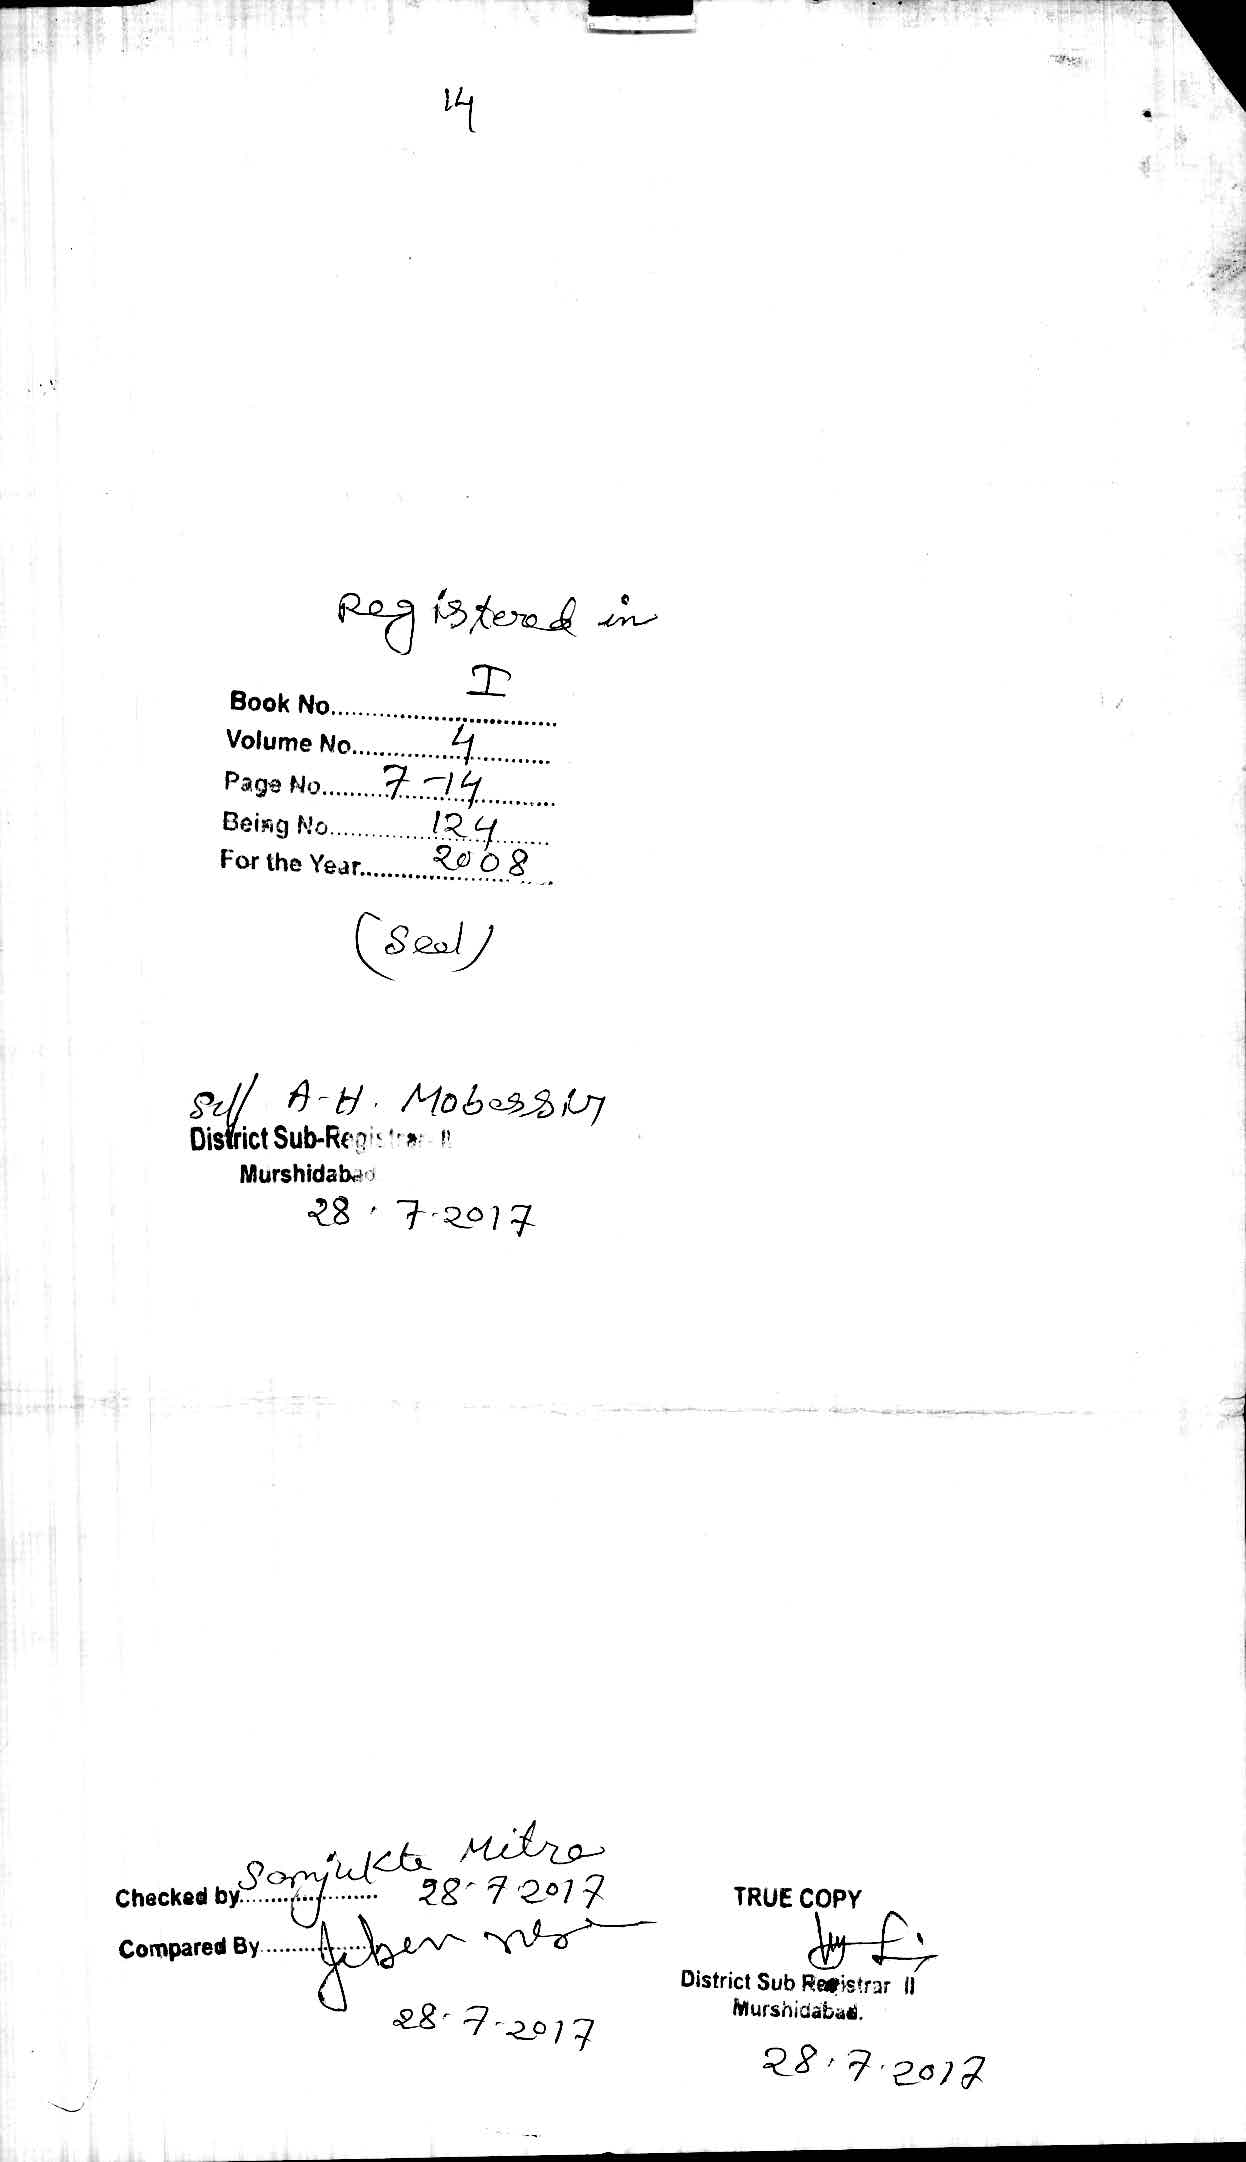 14
Registered in
Book No. I
Volume No. 4
Page No. 7-14
Being No. 124
For the Year 2008
(Seal)
Sd/ A-H. Mobassir
District Sub-Registrar II
Murshidabad
28.7.2017
Checked by Sanjukta Mitra
28-7-2017
Compared By Jiben
28-7-2017
TRUE COPY
District Sub Registrar II
Murshidabad.
28.7.2017